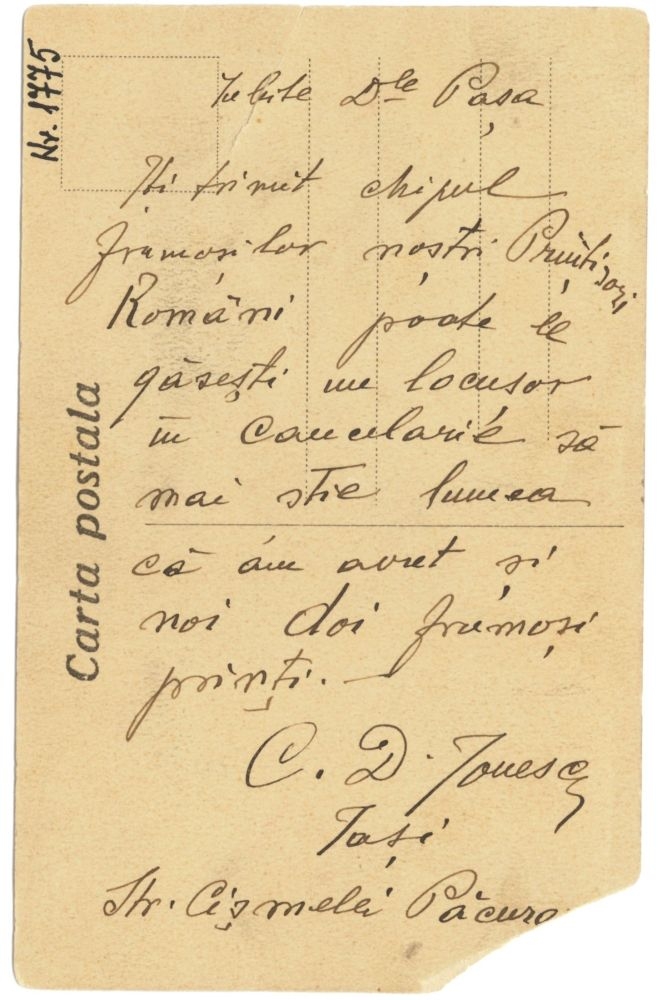 Nr. 1775
Carta postala
Iubite Dle Pașa
Iți trimit chipul
frumoșilor noștri Prinți șori
Români poate le
găsești un locușor
in cancelarie să
mai știe lumea
că am avut și
noi doi frumoși
prinți. —
C. D. Ionescu
Iași
Str. Cișmelei Păcura